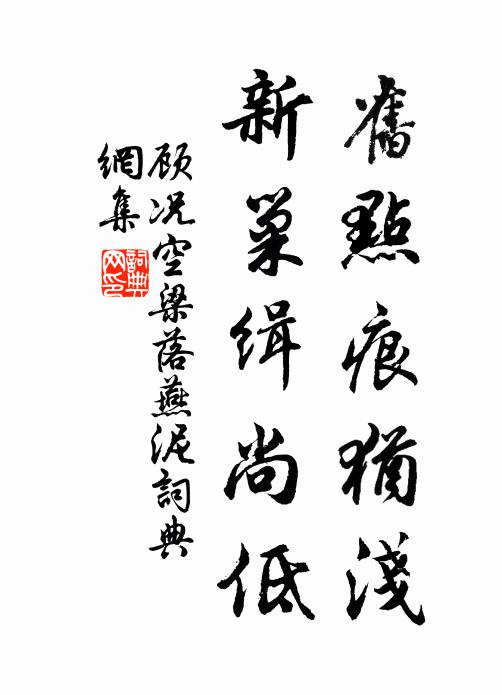 舊點痕猶淺
新巢緝尚低
顾况空梁落燕泥詞典
網集
詞典
网印